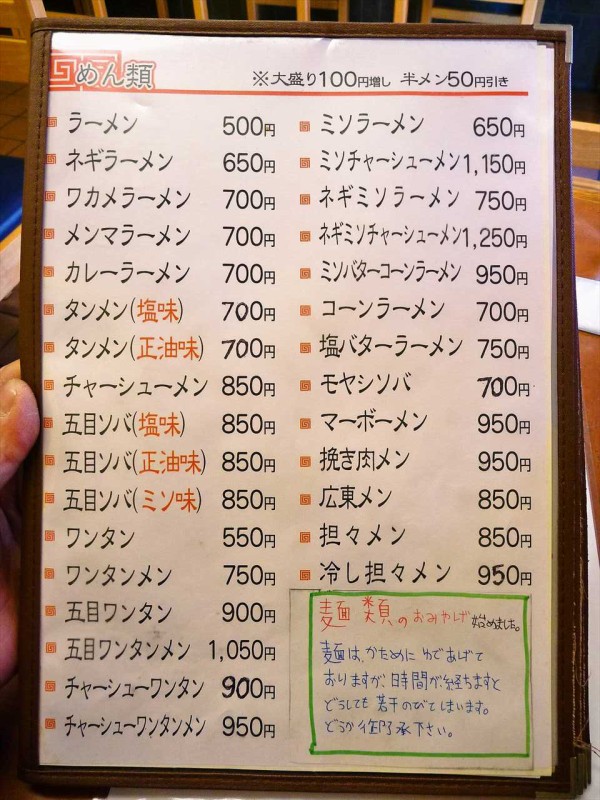 めん類
※大盛り100円増し 半メン50円引き
ラーメン 500円
ネギラーメン 650円
ワカメラーメン 700円
メンマラーメン 700円
カレーラーメン 700円
タンメン(塩味) 700円
タンメン(正油味) 700円
チャーシューメン 850円
五目ソバ(塩味) 850円
五目ソバ(正油味) 850円
五目ソバ(ミソ味) 850円
ワンタン 550円
ワンタンメン 750円
五目ワンタン 900円
五目ワンタンメン 1,050円
チャーシューワンタン 900円
チャーシューワンタンメン 950円
ミソラーメン 650円
ミソチャーシューメン 1,150円
ネギミソラーメン 750円
ネギミソチャーシューメン 1,250円
ミソバターコーンラーメン 950円
コーンラーメン 700円
塩バターラーメン 750円
モヤシソバ 700円
マーボーメン 950円
挽き肉メン 950円
広東メン 850円
担々メン 850円
冷し担々メン 950円
麺類のおみやげ始めました。
麺は、かために ゆであげて
おりますが、時間が経ちますと
どうしても 若干のびてしまいます。
どうか御了承下さい。